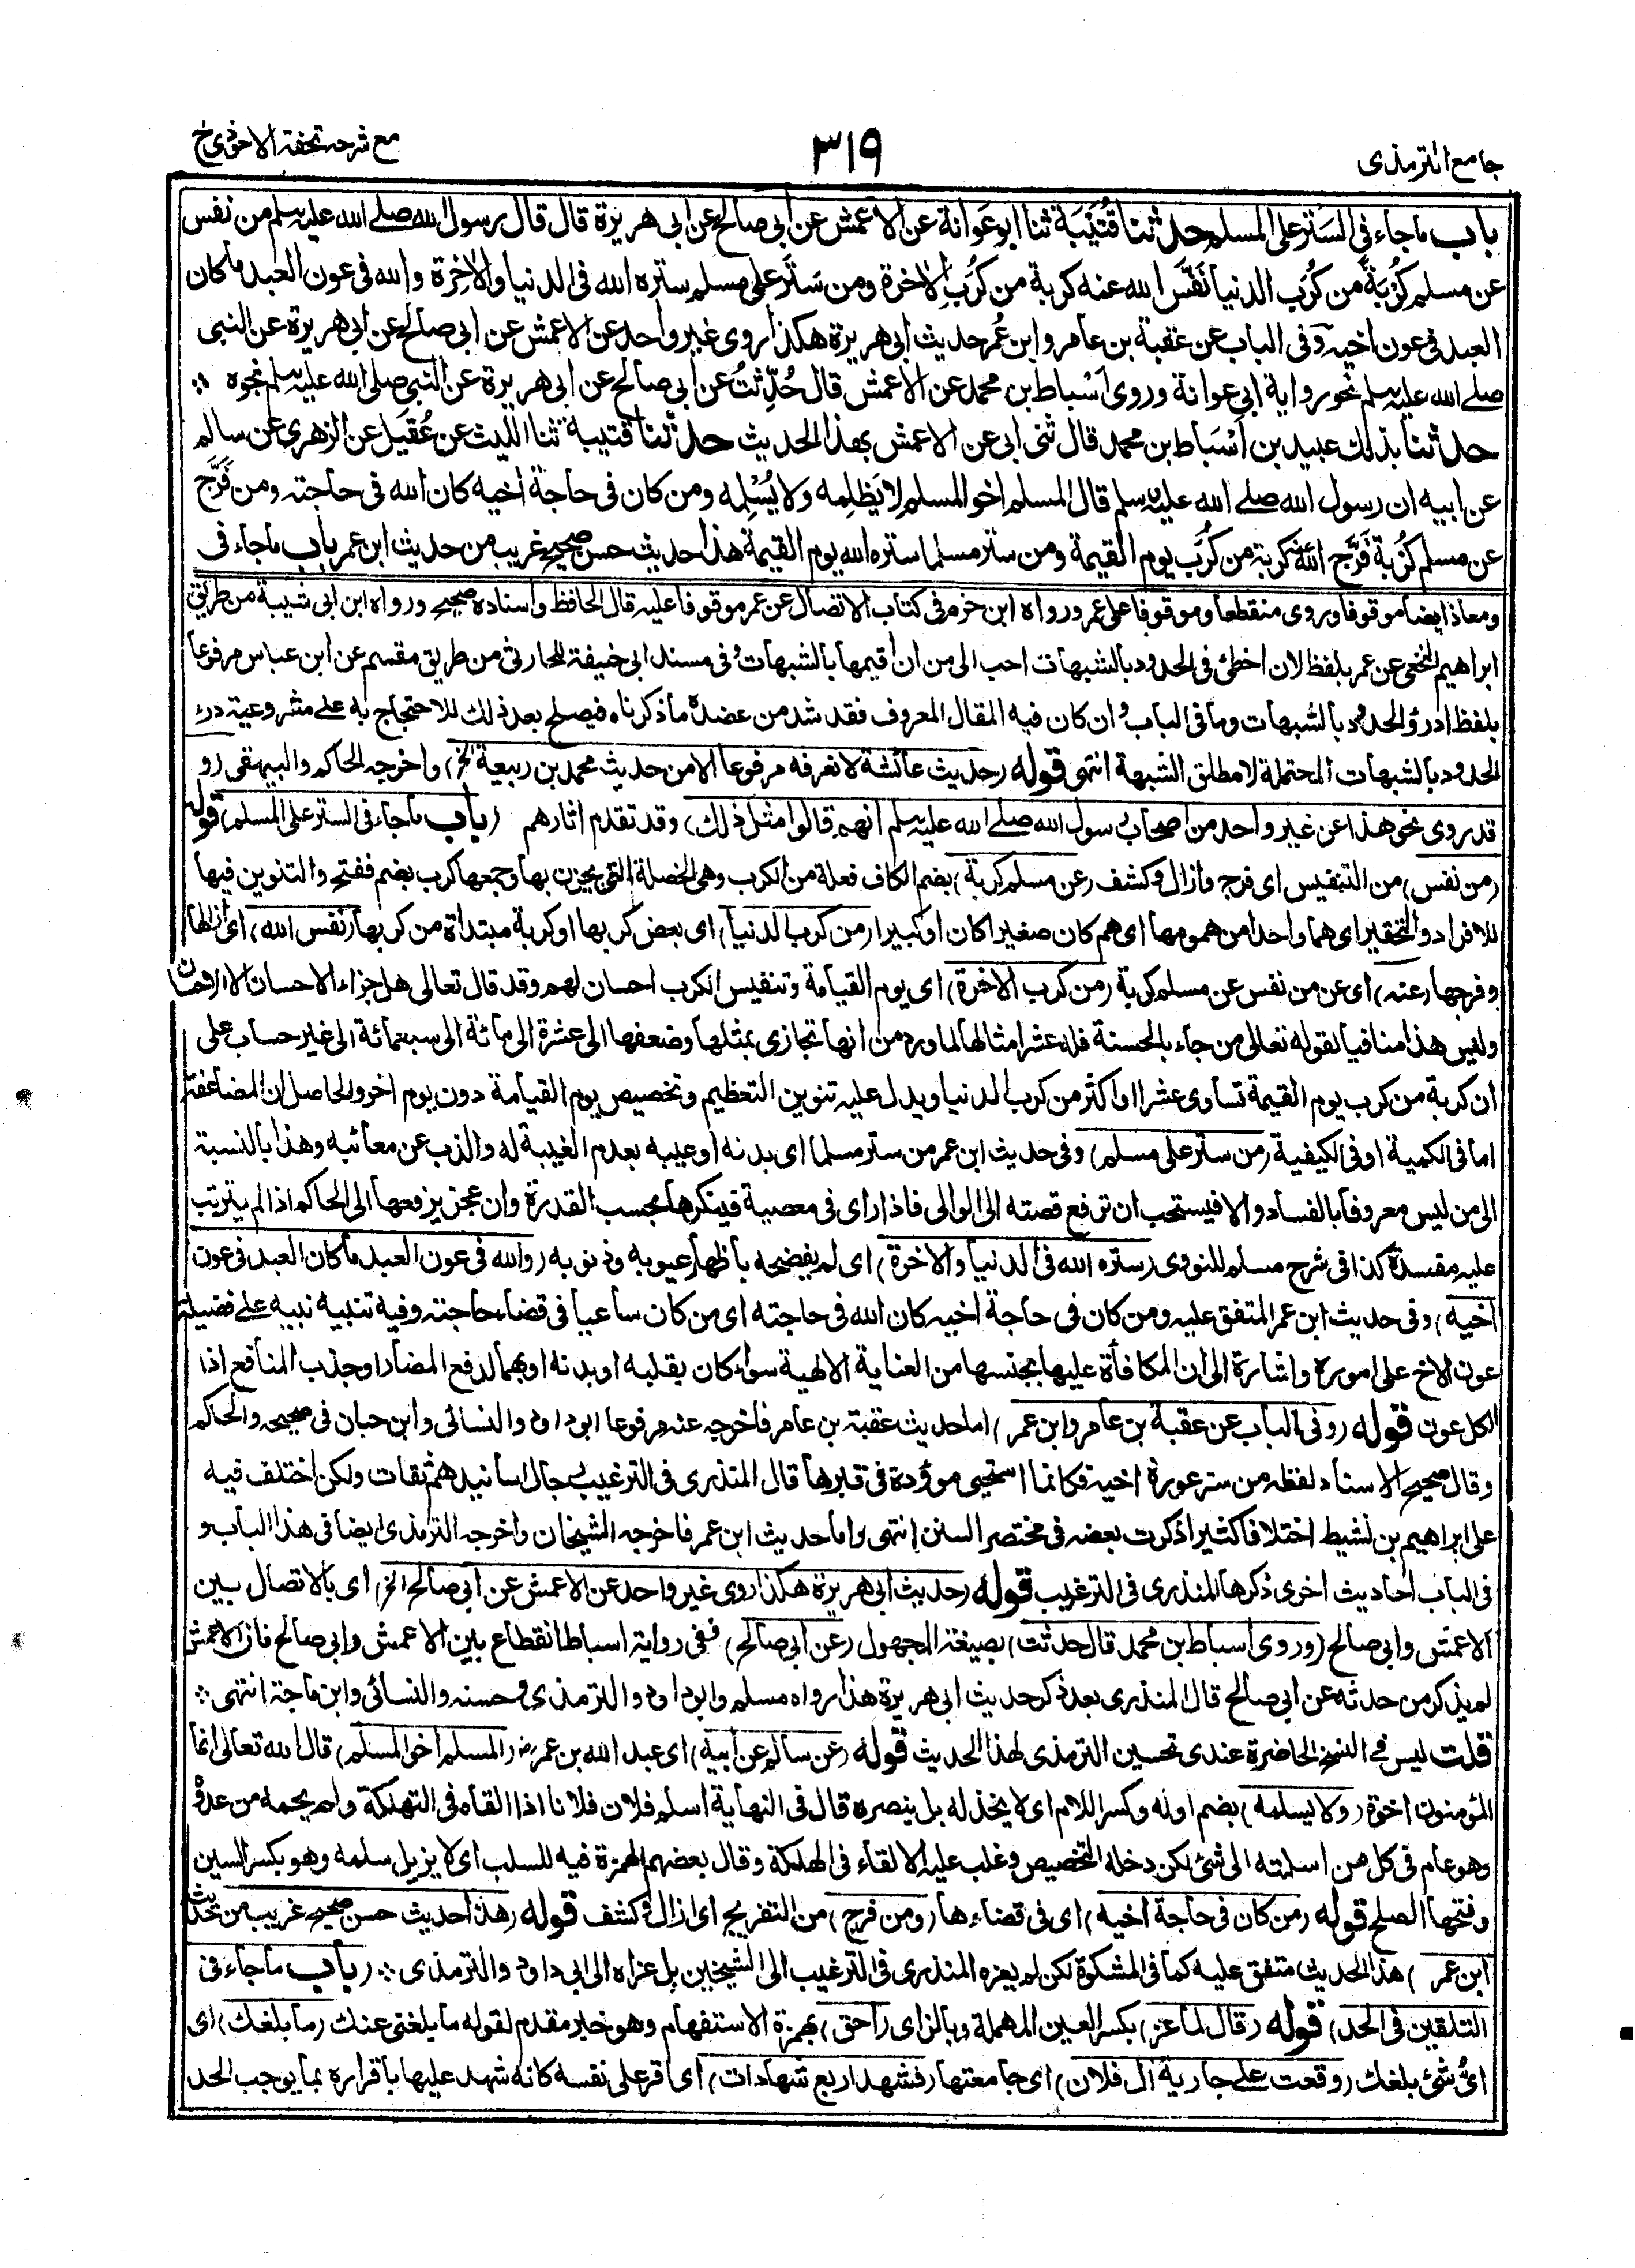 جامع الترمذى
٣١٩
مع شرحه تحفة الاحوذى ج
باب ماجاء فى السَّتر على المسلم حدثنا قُتَيْبَة ثنا ابو عَوانة عن الاعمش عن ابى صالح عن ابى هريرة قال قال رسول الله صلے الله عليه وسلم من نفس
عن مسلم كُرْبَةً من كُرَب الدنيا نَفَّسَ الله عنه كربة من كُرَبِ الاٰخرة ومن سَتَر على مسلم ستره الله فى الدنيا والاٰخِرة والله فى عون العبد ما كان
العبد فى عون اخيه وفى الباب عن عقبة بن عامر وابن عُمر حديث ابى هريرة هكذا روى غير واحد عن الاعمش عن ابى صالح عن ابى هريرة عن النبى
صلے الله عليه وسلم نحو رواية ابى عوانة وروى اَسْباط بن محمد عن الاعمش قال حُدِّثتُ عن ابى صالح عن ابى هريرة عن النبى صلى الله عليه وسلم نحوه ❊
حدثنا بذلك عبيد بن اَسْبَاط بن محمد قال ثنى ابى عن الاعمش بهذا الحديث حدثنا قتيبة ثنا الليث عن عُقَيل عن الزهرى عن سالم
عن ابيه ان رسول الله صلے الله عليه وسلم قال المسلم اخو المسلم لا يَظلِمه ولا يُسْلِمه ومن كان فى حاجة اخيه كان الله فى حاجته ومن فَرَّج
عن مسلم كُرْبة فَرَّج الله عنه كربة من كُرَب يوم القيٰمة ومن ستر مسلما ستره الله يوم القيٰمة هذا حديث حسن صحيح غريب من حديث ابن عمر باب ماجاء فى
ومعاذ ايضا موقوفا وروى منقطعا وموقوفا على عمر ورواه ابن حزم فى كتاب الاتصال عن عمر موقوفا عليه قال الحافظ واسناده صحيح ورواه ابن ابى شيبة من طريق
ابراهيم النخعى عن عمر بلفظ لان اخطئ فى الحدود بالشبهات احب الى من ان اقيمها بالشبهات وفى مسند ابى حنيفة للحارثى من طريق مقسم عن ابن عباس مرفوعا
بلفظ ادرؤ الحدود بالشبهات وما فى الباب وان كان فيه المقال المعروف فقد شد من عضده ما ذكرناه فيصلح بعد ذلك للاحتجاج به على مشروعية درء
الحدود بالشبهات المحتملة لا مطلق الشبهة انتهى قوله (حديث عائشة لا نعرفه مرفوعا الا من حديث محمد بن ربيعة الخ) واخرجه الحاكم والبيهقى (و
قد روى نحو هذا عن غير واحد من اصحاب رسول الله صلے الله عليه وسلم انهم قالوا مثل ذلك) وقد تقدم اثارهم (باب ماجاء فى الستر على المسلم) قوله
(من نفس) من التنفيس اى فرج وازال وكشف (عن مسلم كربة) بضم الكاف فعلة من الكرب وهى الخصلة التى يحزن بها وجمعها كرب بضم ففتح والتنوين فيها
للافراد والتحقير اى هما واحدا من همومها اى هم كان صغيرا كان او كبيرا (من كرب الدنيا) اى بعض كربها او كربة مبتدأة من كربها (نفس الله) اى ازالها
وفرجها (عنه) اى عن من نفس عن مسلم كربة (من كرب الاخرة) اى يوم القيامة وتنفيس الكرب احسان لهم وقد قال تعالى هل جزاء الاحسان الا الاحسان
وليس هذا منافيا لقوله تعالى من جاء بالحسنة فله عشر امثالها لما ورد من انها تجازى بمثلها وضعفها الى عشرة الى مائة الى سبعمائة الى غير حساب على
ان كربة من كرب يوم القيمة تساوى عشرا او اكثر من كرب الدنيا ويدل عليه تنوين التعظيم وتخصيص يوم القيامة دون يوم اخر والحاصل ان المضاعفة
اما فى الكمية او فى الكيفية (من ستر على مسلم) وفى حديث ابن عمر من ستر مسلما اى بدنه او عيبه بعدم الغيبة له والذب عن معائبه وهذا بالنسبة
الى من ليس معروفا بالفساد والا فيستحب ان ترفع قصته الى الوالى فاذا راى فى معصية فينكرها بحسب القدرة وان عجز يرفعها الى الحاكم اذا لم يترتب
عليه مفسدة كذا فى شرح مسلم للنووى (ستره الله فى الدنيا والاخرة) اى لم يفضحه باظهار عيوبه وذنوبه (والله فى عون العبد ما كان العبد فى عون
اخيه) وفى حديث ابن عمر المتفق عليه ومن كان فى حاجة اخيه كان الله فى حاجته اى من كان ساعيا فى قضاء حاجته وفيه تنبيه نبيه على فضيلة
عون الاخ على اموره واشارة الى ان المكافأة عليها بجنسها من العناية الالهية سواء كان بقلبه او بدنه او بهما لدفع المضار او جذب المنافع اذا
الكل عون قوله (وفى الباب عن عقبة بن عامر وابن عمر) اما حديث عقبة بن عامر فاخرجه عنه مرفوعا ابو داود والنسائى وابن حبان فى صحيحه والحاكم
وقال صحيح الاسناد لفظه من ستر عورة اخيه فكانما استحيى موؤدة فى قبرها قال المنذرى فى الترغيب رجال اسانيدهم ثقات ولكن اختلف فيه
على ابراهيم بن نشيط اختلافا كثيرا ذكرت بعضه فى مختصر السنن انتهى واما حديث ابن عمر فاخرجه الشيخان واخرجه الترمذى ايضا فى هذا الباب و
فى الباب احاديث اخرى ذكرها المنذرى فى الترغيب قوله (حديث ابى هريرة هكذا روى غير واحد عن الاعمش عن ابى صالح الخ) اى بالاتصال بين
الاعمش وابى صالح (وروى اسباط بن محمد قال حدثت) بصيغة المجهول (عن ابى صالح) ففى رواية اسباط انقطاع بين الاعمش وابى صالح فان الاعمش
لم يذكر من حدثه عن ابى صالح قال المنذرى بعد ذكر حديث ابى هريرة هذا رواه مسلم وابو داود والترمذى وحسنه والنسائى وابن ماجة انتهى ❊
قلت ليس فى النسخ الحاضرة عندى تحسين الترمذى لهذا الحديث قوله (عن سالم عن ابيه) اى عبد الله بن عمر رضـ (المسلم اخو المسلم) قال الله تعالى انما
المؤمنون اخوة (ولا يسلمه) بضم اوله وكسر اللام اى لا يخذله بل ينصره قال فى النهاية اسلم فلان فلانا اذا القاه فى التهلكة ولم يحمه من عدوه
وهو عام فى كل من اسلمته الى شئ لكن دخله التخصيص وغلب عليه الالقاء فى الهلكة وقال بعضهم الهمزة فيه للسلب اى لا يزيل سلمه وهو بكسر السين
وفتحها الصلح قوله (من كان فى حاجة اخيه) اى فى قضاءها (ومن فرج) من التفريج اى ازال وكشف قوله (هذا حديث حسن صحيح غريب من حديث
ابن عمر) هذا الحديث متفق عليه كما فى المشكوة لكن لم يعزه المنذرى فى الترغيب الى الشيخين بل عزاه الى ابى داود والترمذى ❊ (باب ماجاء فى
التلقين فى الحد) قوله (قال لماعز) بكسر العين المهملة وبالزاى (احق) بهمزة الاستفهام وهو خبر مقدم لقوله ما بلغنى عنك (ما بلغك) اى
اىُّ شئ بلغك (وقعت على جارية ال فلان) اى جامعتها (فشهد اربع شهادات) اى اقر على نفسه كانه شهد عليها باقراره بما يوجب الحد